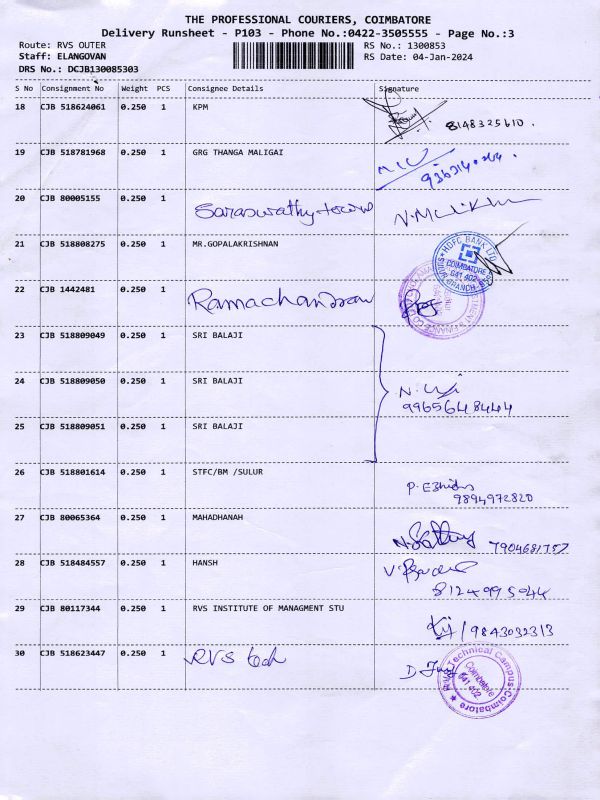 THE PROFESSIONAL COURIERS, COIMBATORE
Delivery Runsheet - P103 - Phone No.:0422-3505555 - Page No.:3
Route: RVS OUTER RS No.: 1300853
Staff: ELANGOVAN RS Date: 04-Jan-2024
DRS No.: DCJB130085303
S No Consignment No Weight PCS Consignee Details Signature
18 CJB 518624061 0.250 1 KPM 8148325610.
19 CJB 518781968 0.250 1 GRG THANGA MALIGAI
20 CJB 80005155 0.250 1 Saraswathy towers
21 CJB 518808275 0.250 1 MR.GOPALAKRISHNAN
HDFC BANK LTD
COIMBATORE
641 402
BRANCH
22 CJB 1442481 0.250 1 Ramachandran
23 CJB 518809049 0.250 1 SRI BALAJI
24 CJB 518809050 0.250 1 SRI BALAJI
9965648444
25 CJB 518809051 0.250 1 SRI BALAJI
26 CJB 518801614 0.250 1 STFC/BM /SULUR
9894972820
27 CJB 80065364 0.250 1 MAHADHANAH 7904681757
28 CJB 518484557 0.250 1 HANSH
8124995044
29 CJB 80117344 0.250 1 RVS INSTITUTE OF MANAGMENT STU
9843032313
30 CJB 518623447 0.250 1 RVS tech
Technical Campus-Coimbatore
Coimbatore
641 402